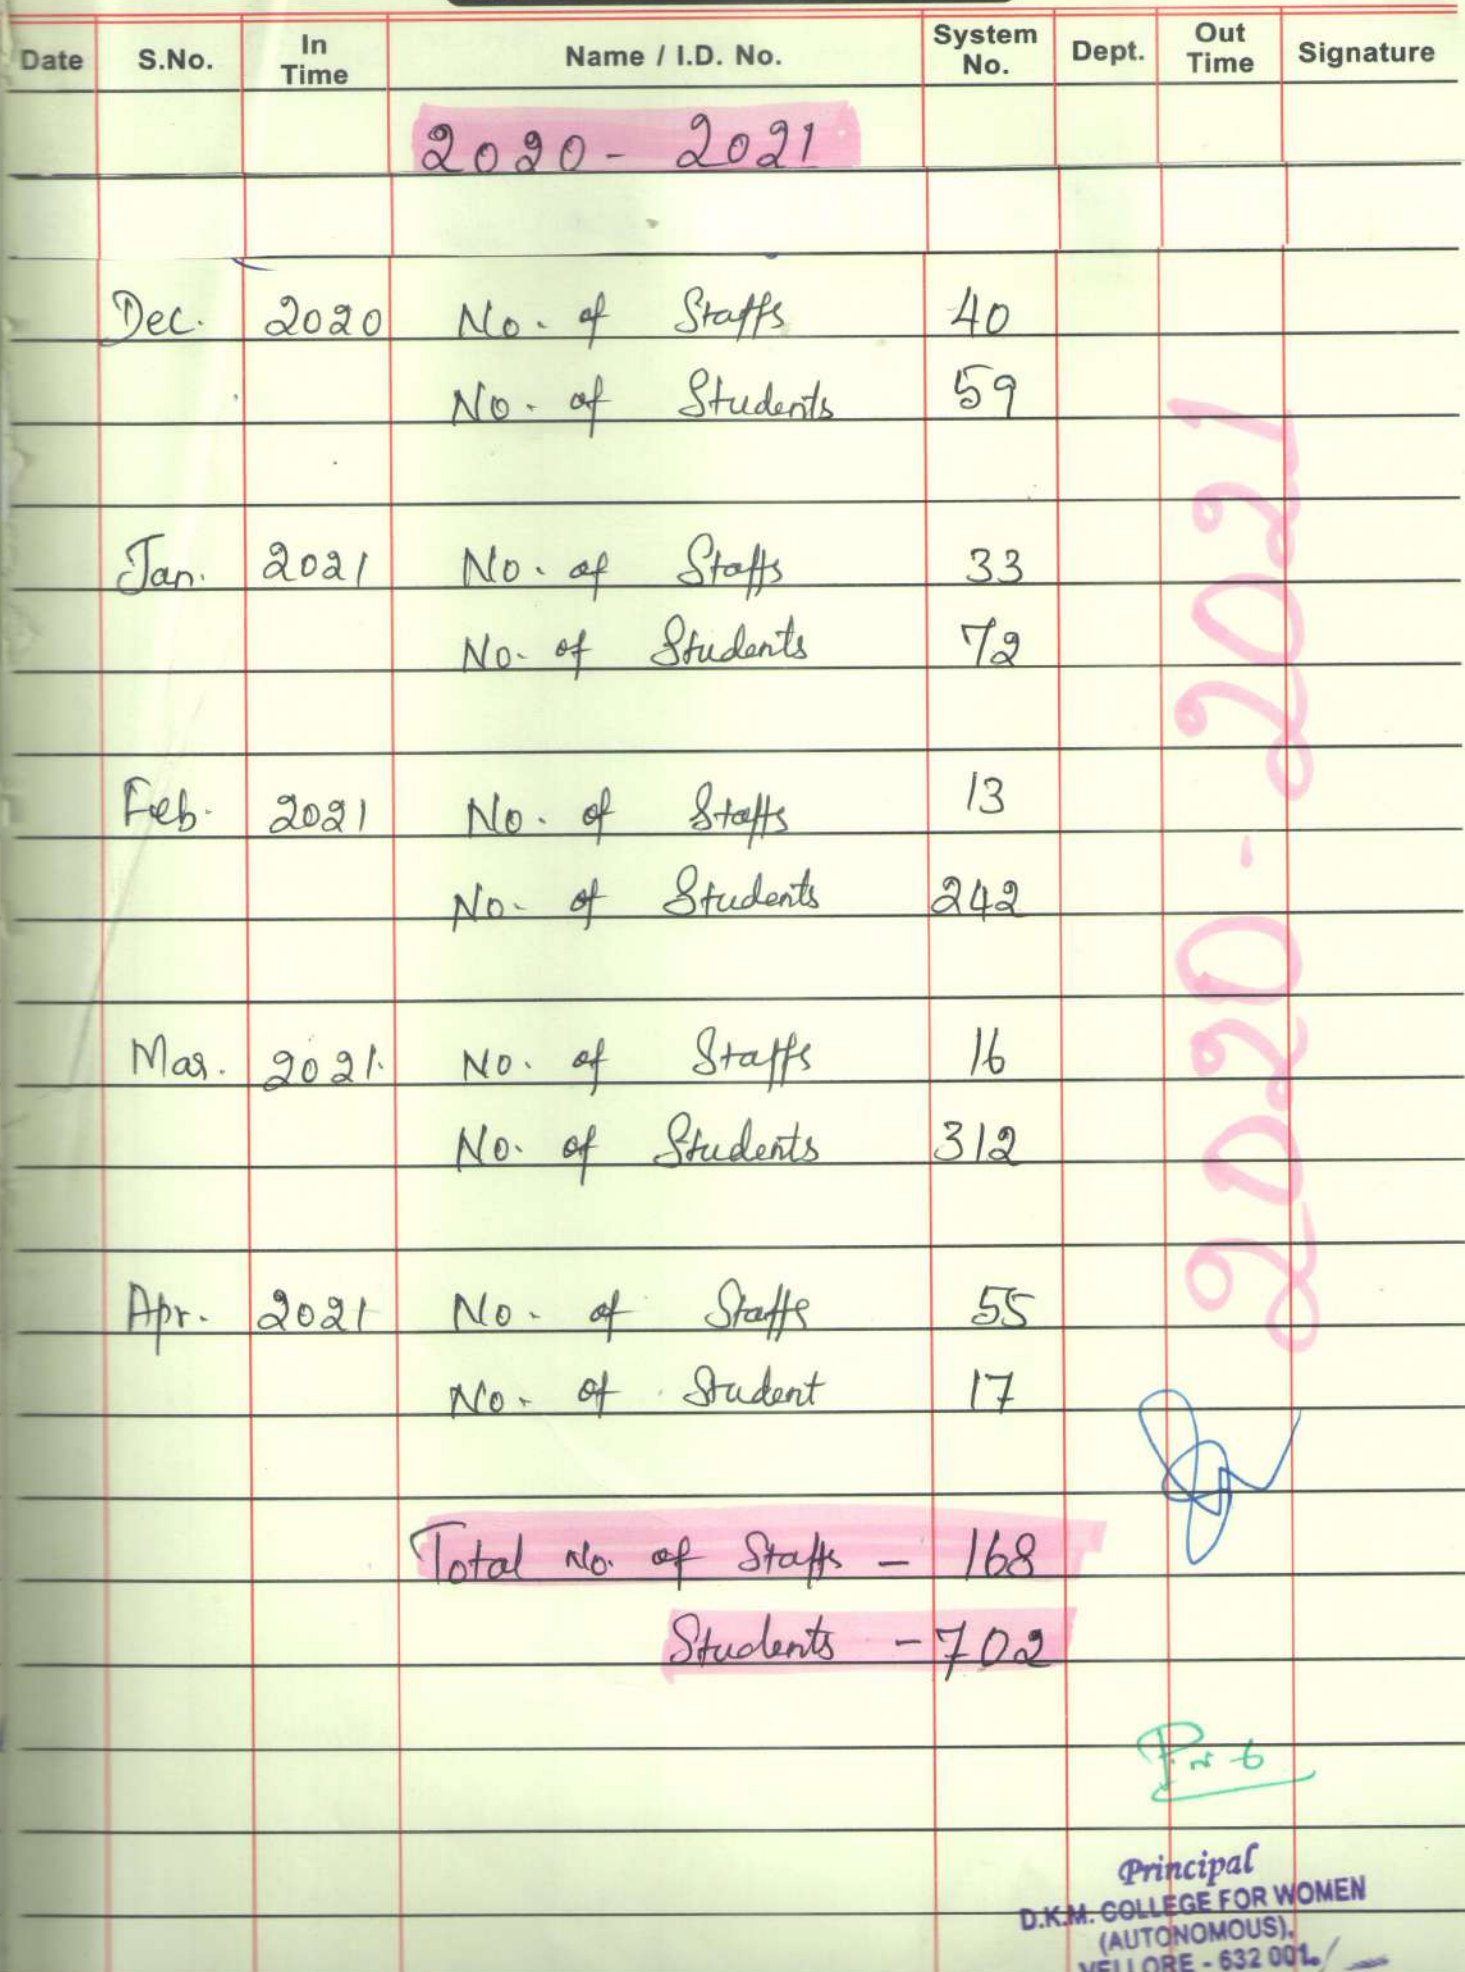 Date S.No. In Time Name / I.D. No. System No. Dept. Out Time Signature
2020 - 2021
Dec. 2020 No. of Staffs 40
No. of Students 59
Jan. 2021 No. of Staffs 33
No. of Students 72
Feb. 2021 No. of Staffs 13
No. of Students 242
Mar. 2021. No. of Staffs 16
No. of Students 312
Apr. 2021 No. of Staffs 55
No. of Student 17
Total No. of Staffs - 168
Students - 702
2020 - 2021
Principal
D.K.M. COLLEGE FOR WOMEN
(AUTONOMOUS),
VELLORE - 632 001.